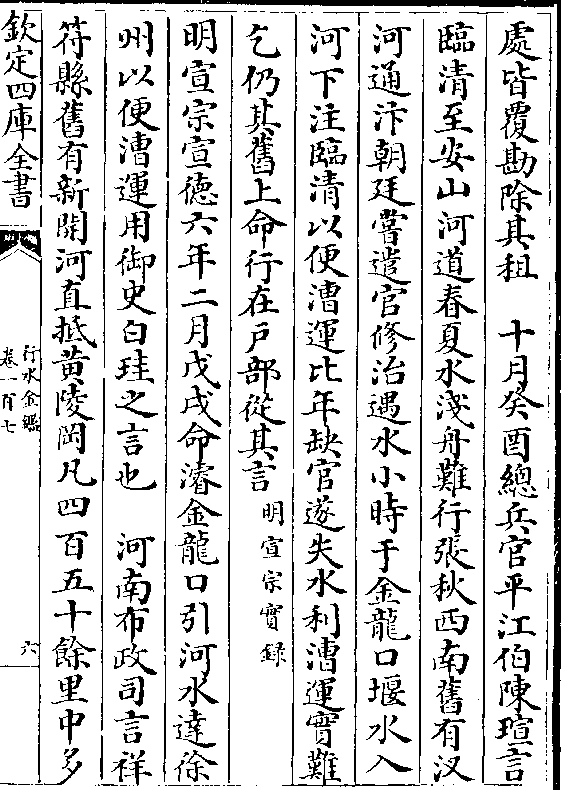 處皆覆勘除其租　十月癸酉總兵官平江伯陳瑄言
臨清至安山河道春夏水淺舟難行張秋西南舊有汊
河通汴朝廷嘗遣官修治遇水小時于金龍口堰水入
河下注臨清以便漕運比年缺官遂失水利漕運實難
乞仍其舊上命行在戶部從其言明宣宗實録
明宣宗宣徳六年二月戊戌命濬金龍口引河水達徐
州以便漕運用御史白珪之言也　河南布政司言祥
符縣舊有新開河直抵黄陵岡凡四百五十餘里中多
欽定四庫全書
行水金鑑
卷一百七
六